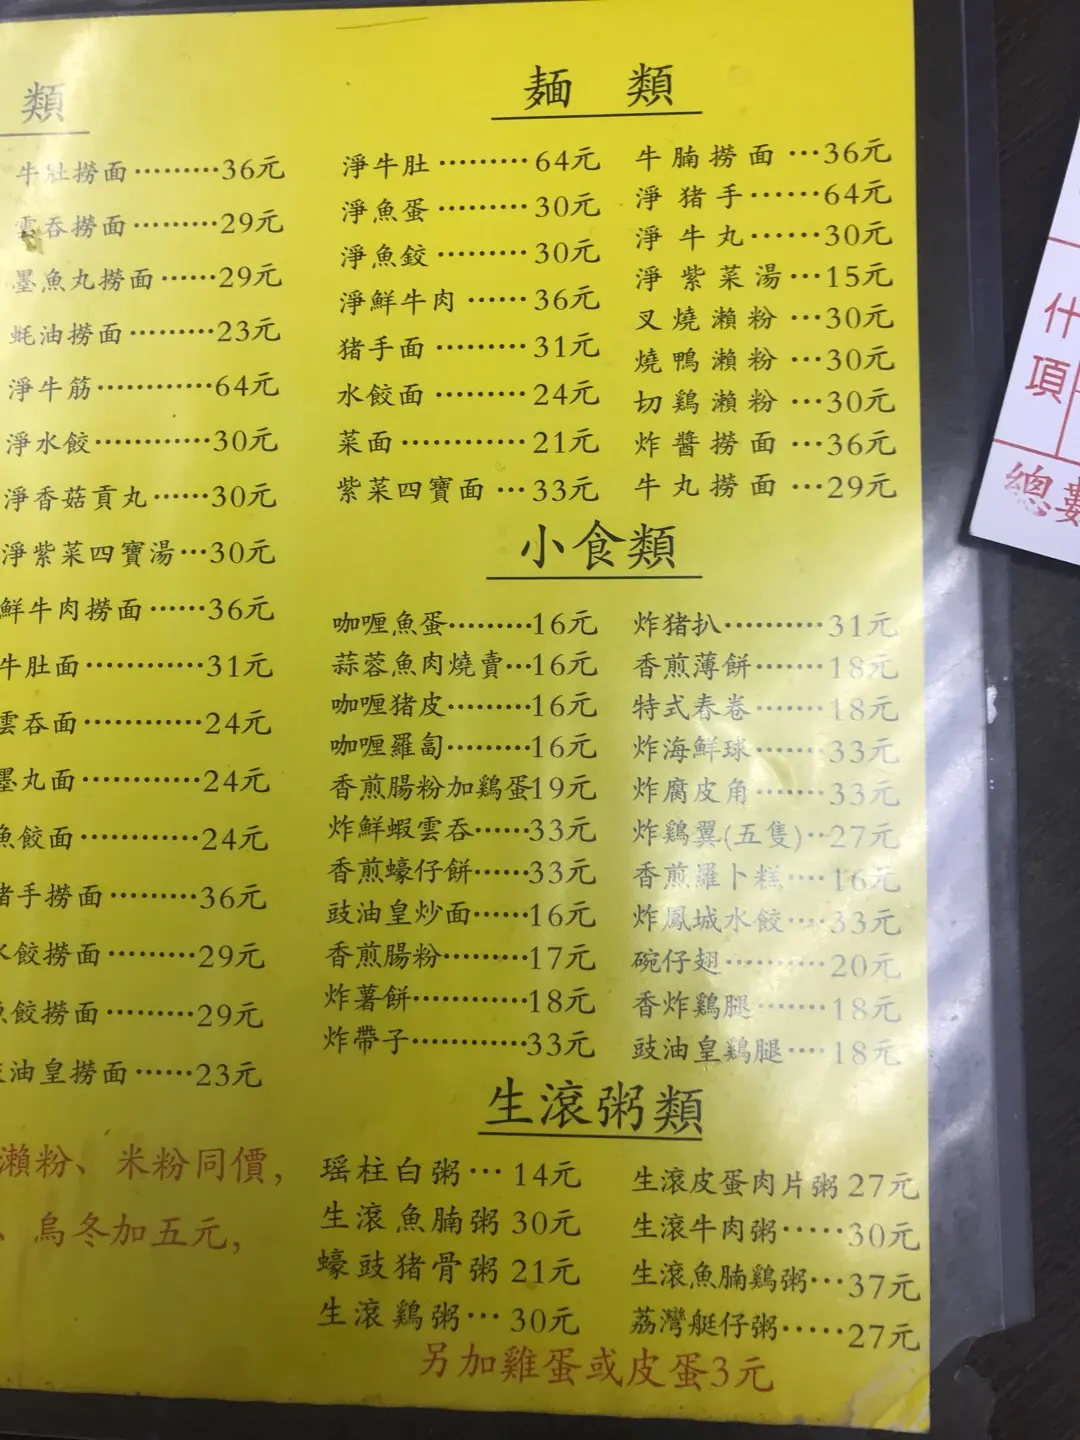 類
牛肚撈面………36元
雲吞撈面………29元
墨魚丸撈面……29元
蚝油撈面………23元
淨牛筋…………64元
淨水餃…………30元
淨香菇貢丸……30元
淨紫菜四寶湯…30元
鮮牛肉撈面……36元
牛肚面…………31元
雲吞面…………24元
墨丸面…………24元
魚餃面…………24元
猪手撈面………36元
水餃撈面………29元
魚餃撈面………29元
油皇撈面……23元
瀨粉、米粉同價,
、烏冬加五元,
麵 類
淨牛肚………64元
淨魚蛋………30元
淨魚餃………30元
淨鮮牛肉……36元
猪手面………31元
水餃面………24元
菜面…………21元
紫菜四寶面…33元
牛腩撈面…36元
淨猪手……64元
淨牛丸……30元
淨紫菜湯…15元
叉燒瀨粉…30元
燒鴨瀨粉…30元
切鷄瀨粉…30元
炸醬撈面…36元
牛丸撈面…29元
小食類
咖喱魚蛋………16元
蒜蓉魚肉燒賣…16元
咖喱猪皮………16元
咖喱羅匐………16元
香煎腸粉加鷄蛋19元
炸鮮蝦雲吞……33元
香煎蠔仔餅……33元
豉油皇炒面……16元
香煎腸粉………17元
炸薯餅…………18元
炸帶子…………33元
炸猪扒…………31元
香煎薄餅………18元
特式春卷………18元
炸海鮮球………33元
炸腐皮角………33元
炸鷄翼(五隻)…27元
香煎羅卜糕……16元
炸鳳城水餃……33元
碗仔翅…………20元
香炸鷄腿………18元
豉油皇鷄腿……18元
生滾粥類
瑶柱白粥…14元
生滾魚腩粥30元
蠔豉猪骨粥21元
生滾鷄粥…30元
生滾皮蛋肉片粥27元
生滾牛肉粥……30元
生滾魚腩鷄粥…37元
荔灣艇仔粥……27元
另加雞蛋或皮蛋3元
什
項
總數